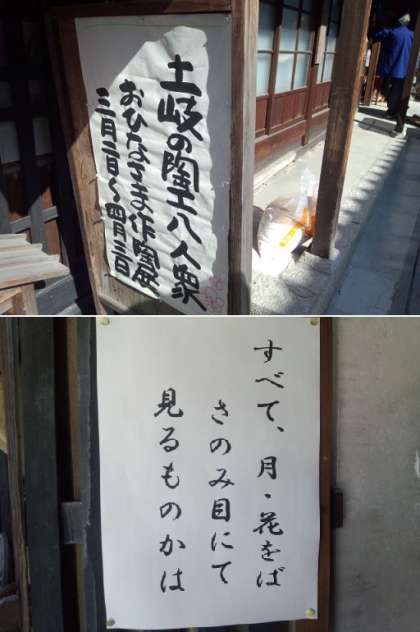 土岐の陶工八人衆
おひなさま作陶展
三月二日～四月三日
すべて、月・花をば
さのみ目にて
見るものかは